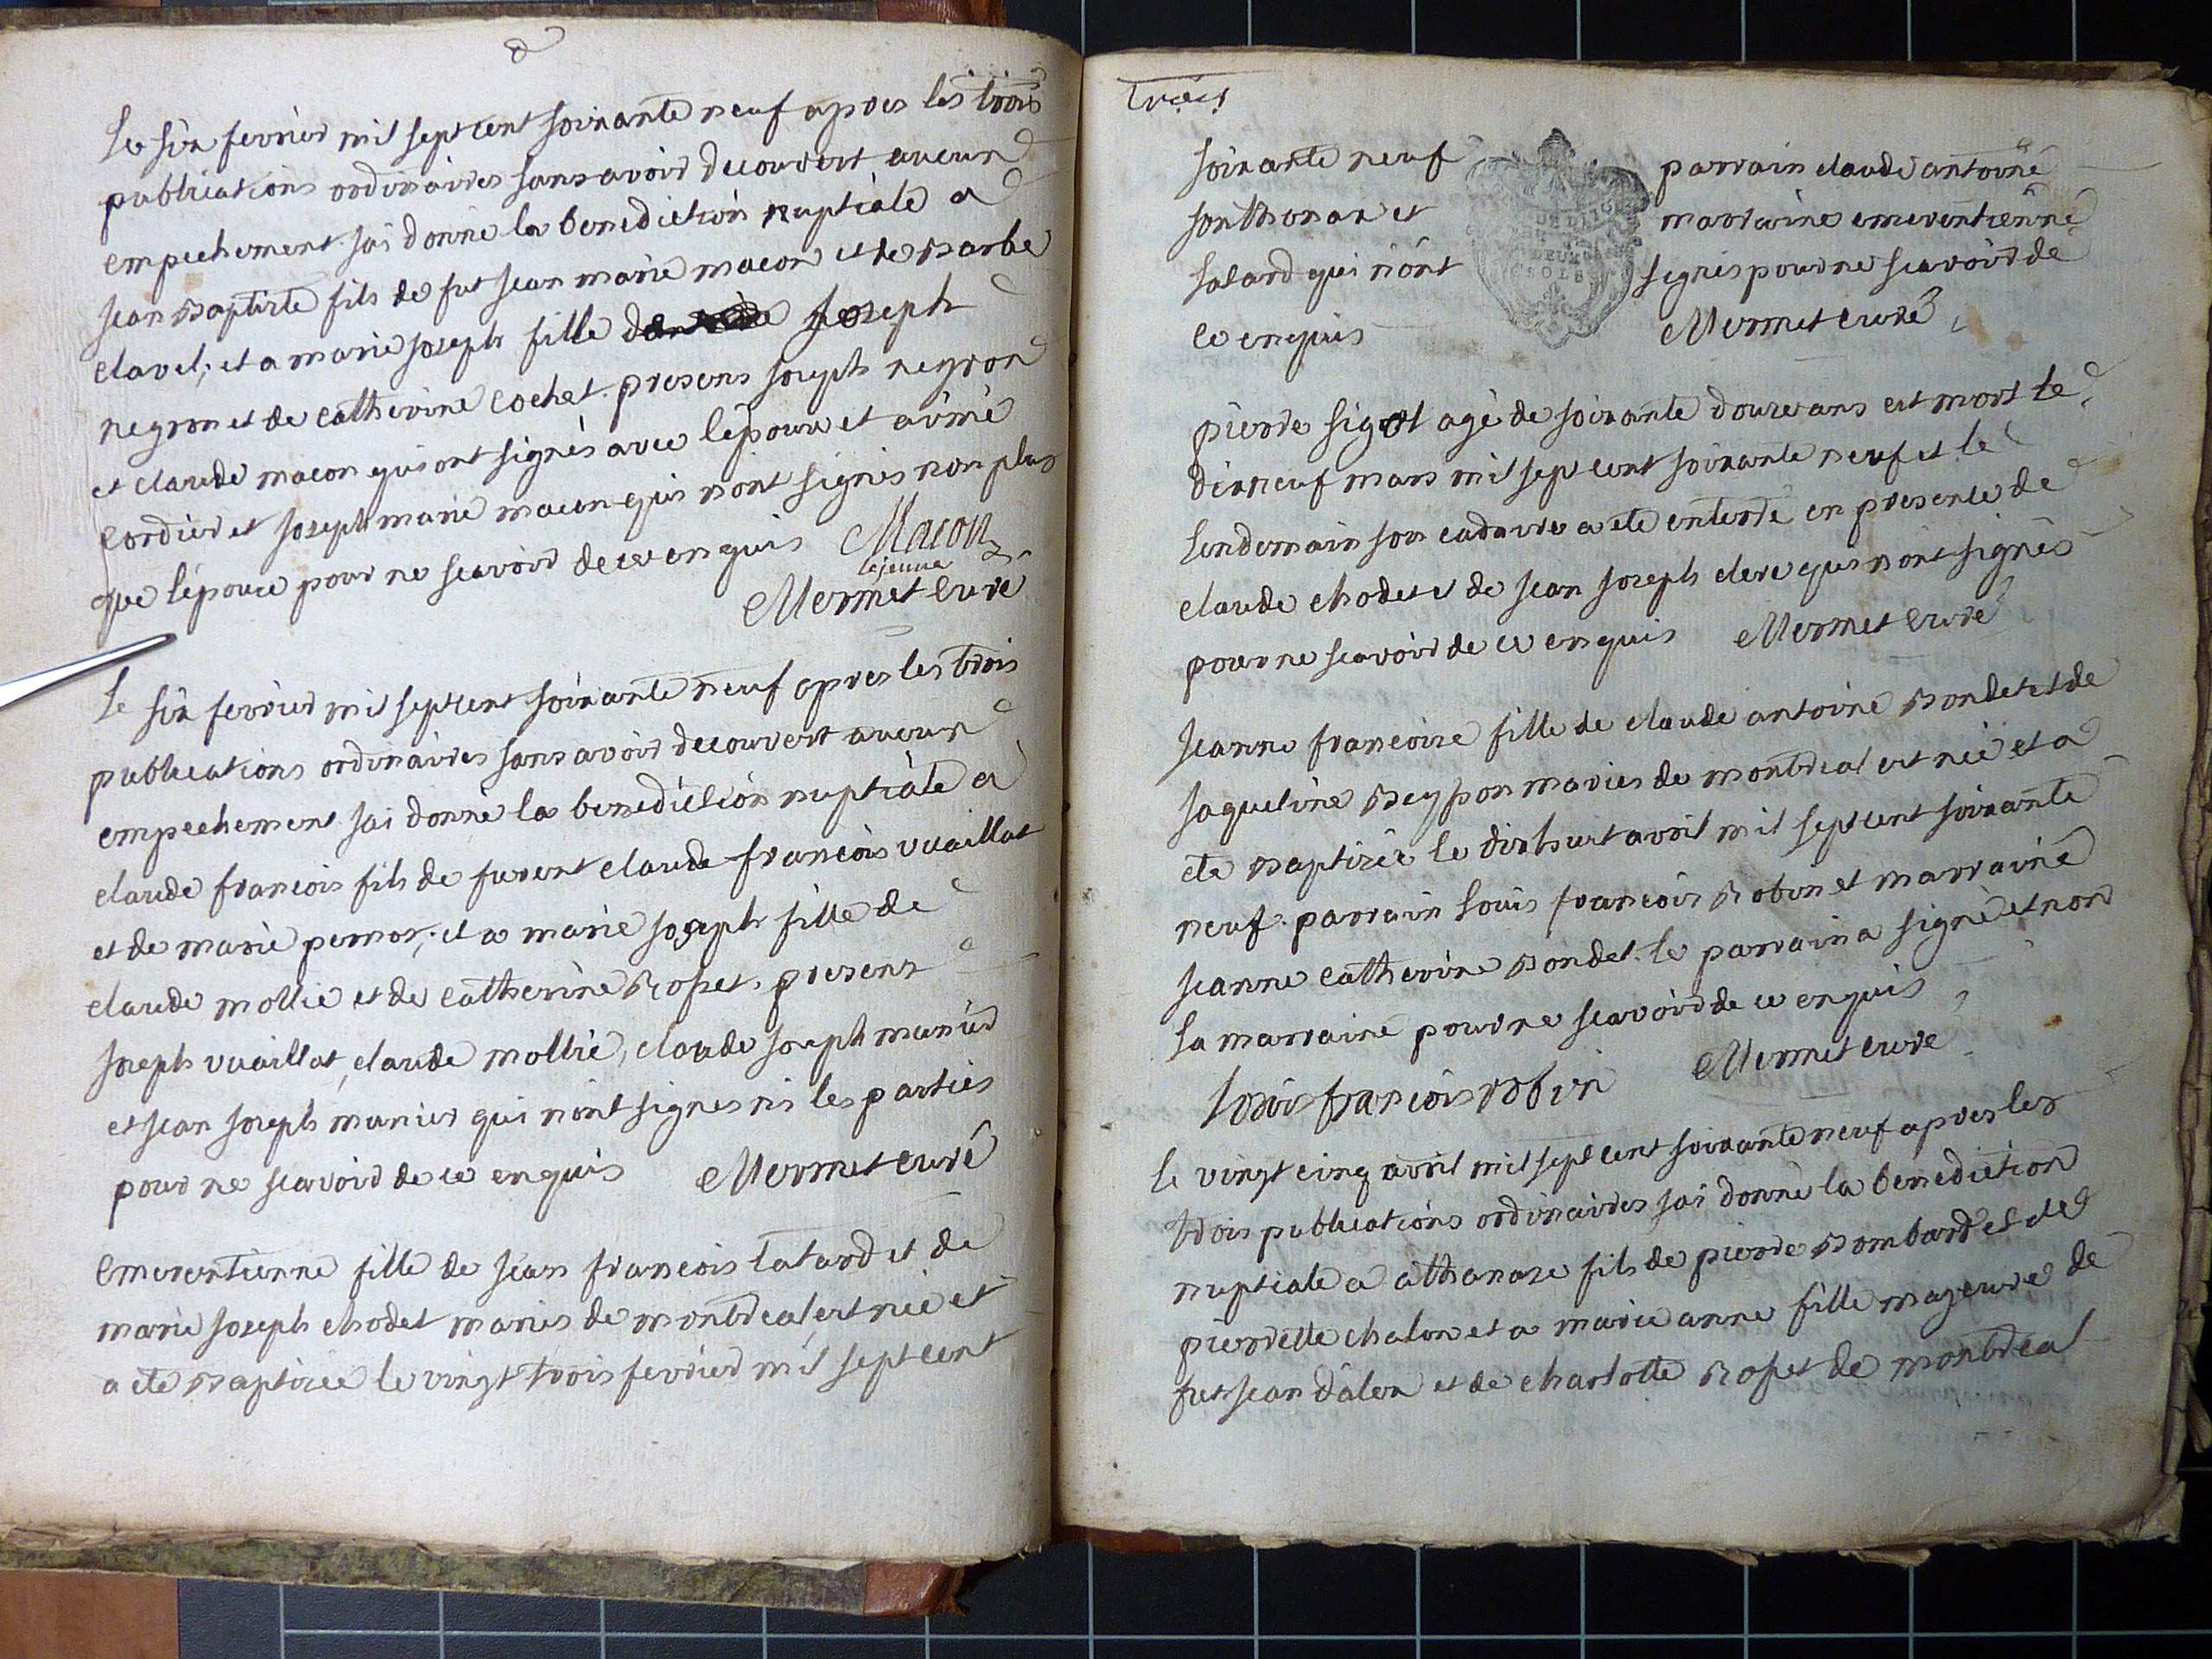 Le six fevrier mil sept cent soixante neuf apres les trois
publications ordinaires sans avoir decouvert aucun
empechement jai donné la benediction nuptiale a
jean Baptiste fils de fut jean marie macon et de Barbe
clavel, et a marie joseph fille joseph
negron et de catherine cochet. presens joseph negron
et claude macon qui ont signés avec lépoux et aimé
cordier et joseph marie macon qui nont signés non plus
que lépouse pour ne scavoir de ce enquis Macon
le jeune
Mermet curé
Le six fevrier mil sept cent soixante neuf apres les trois
publications ordinaires sans avoir decouvert aucun
empechement jai donné la benediction nuptiale a
claude francois fils de furent claude francois vuaillat
et de marie pernos, et a marie joseph fille de
claude mollie et de catherine Roset. presens
joseph vuaillat, claude mollie, claude joseph munier
et jean joseph munier qui nont signes ni les parties
pour ne scavoir de ce enquis Mermet curé
emerentienne fille de jean francois talard et de
marie joseph chodet mariés de montreal, est née et
a ete Baptisee le vingt trois fevrier mil sept cent
trois
soixante neuf parrain claude antoine
sonthonax et marraine emerentienne
salard qui nont signés pour ne scavoir de
ce enquis Mermet curé
DEUX
SOLS
pierre sigot agé de soixante douze ans est mort le
dixneuf mars mil sept cent soixante neuf et le
lendemain son cadavre a ete enterré en presence de
claude chodet et de jean joseph clerc qui nont signés
pour ne scavoir de ce enquis Mermet curé
jeanne francoise fille de claude antoine Bondet et de
jaqueline Reypon mariés de montreal est née et a
ete Baptisée le dixhuit avril mil sept cent soixante
neuf. parrain Louis francois Robin et marraine
jeanne catherine Bondet. le parrain a signé et non
la marraine pour ne scavoir de ce enquis
Louis francois robin Mermet curé
le vingt cinq avril mil sept cent soixante neuf apres les
trois publications ordinaires jai donné la benediction
nuptiale a athanase fils de pierre Bombard et de
pierrette chalon et a marie anne fille majeure de
fut jean dalex et de charlotte Roset de montreal